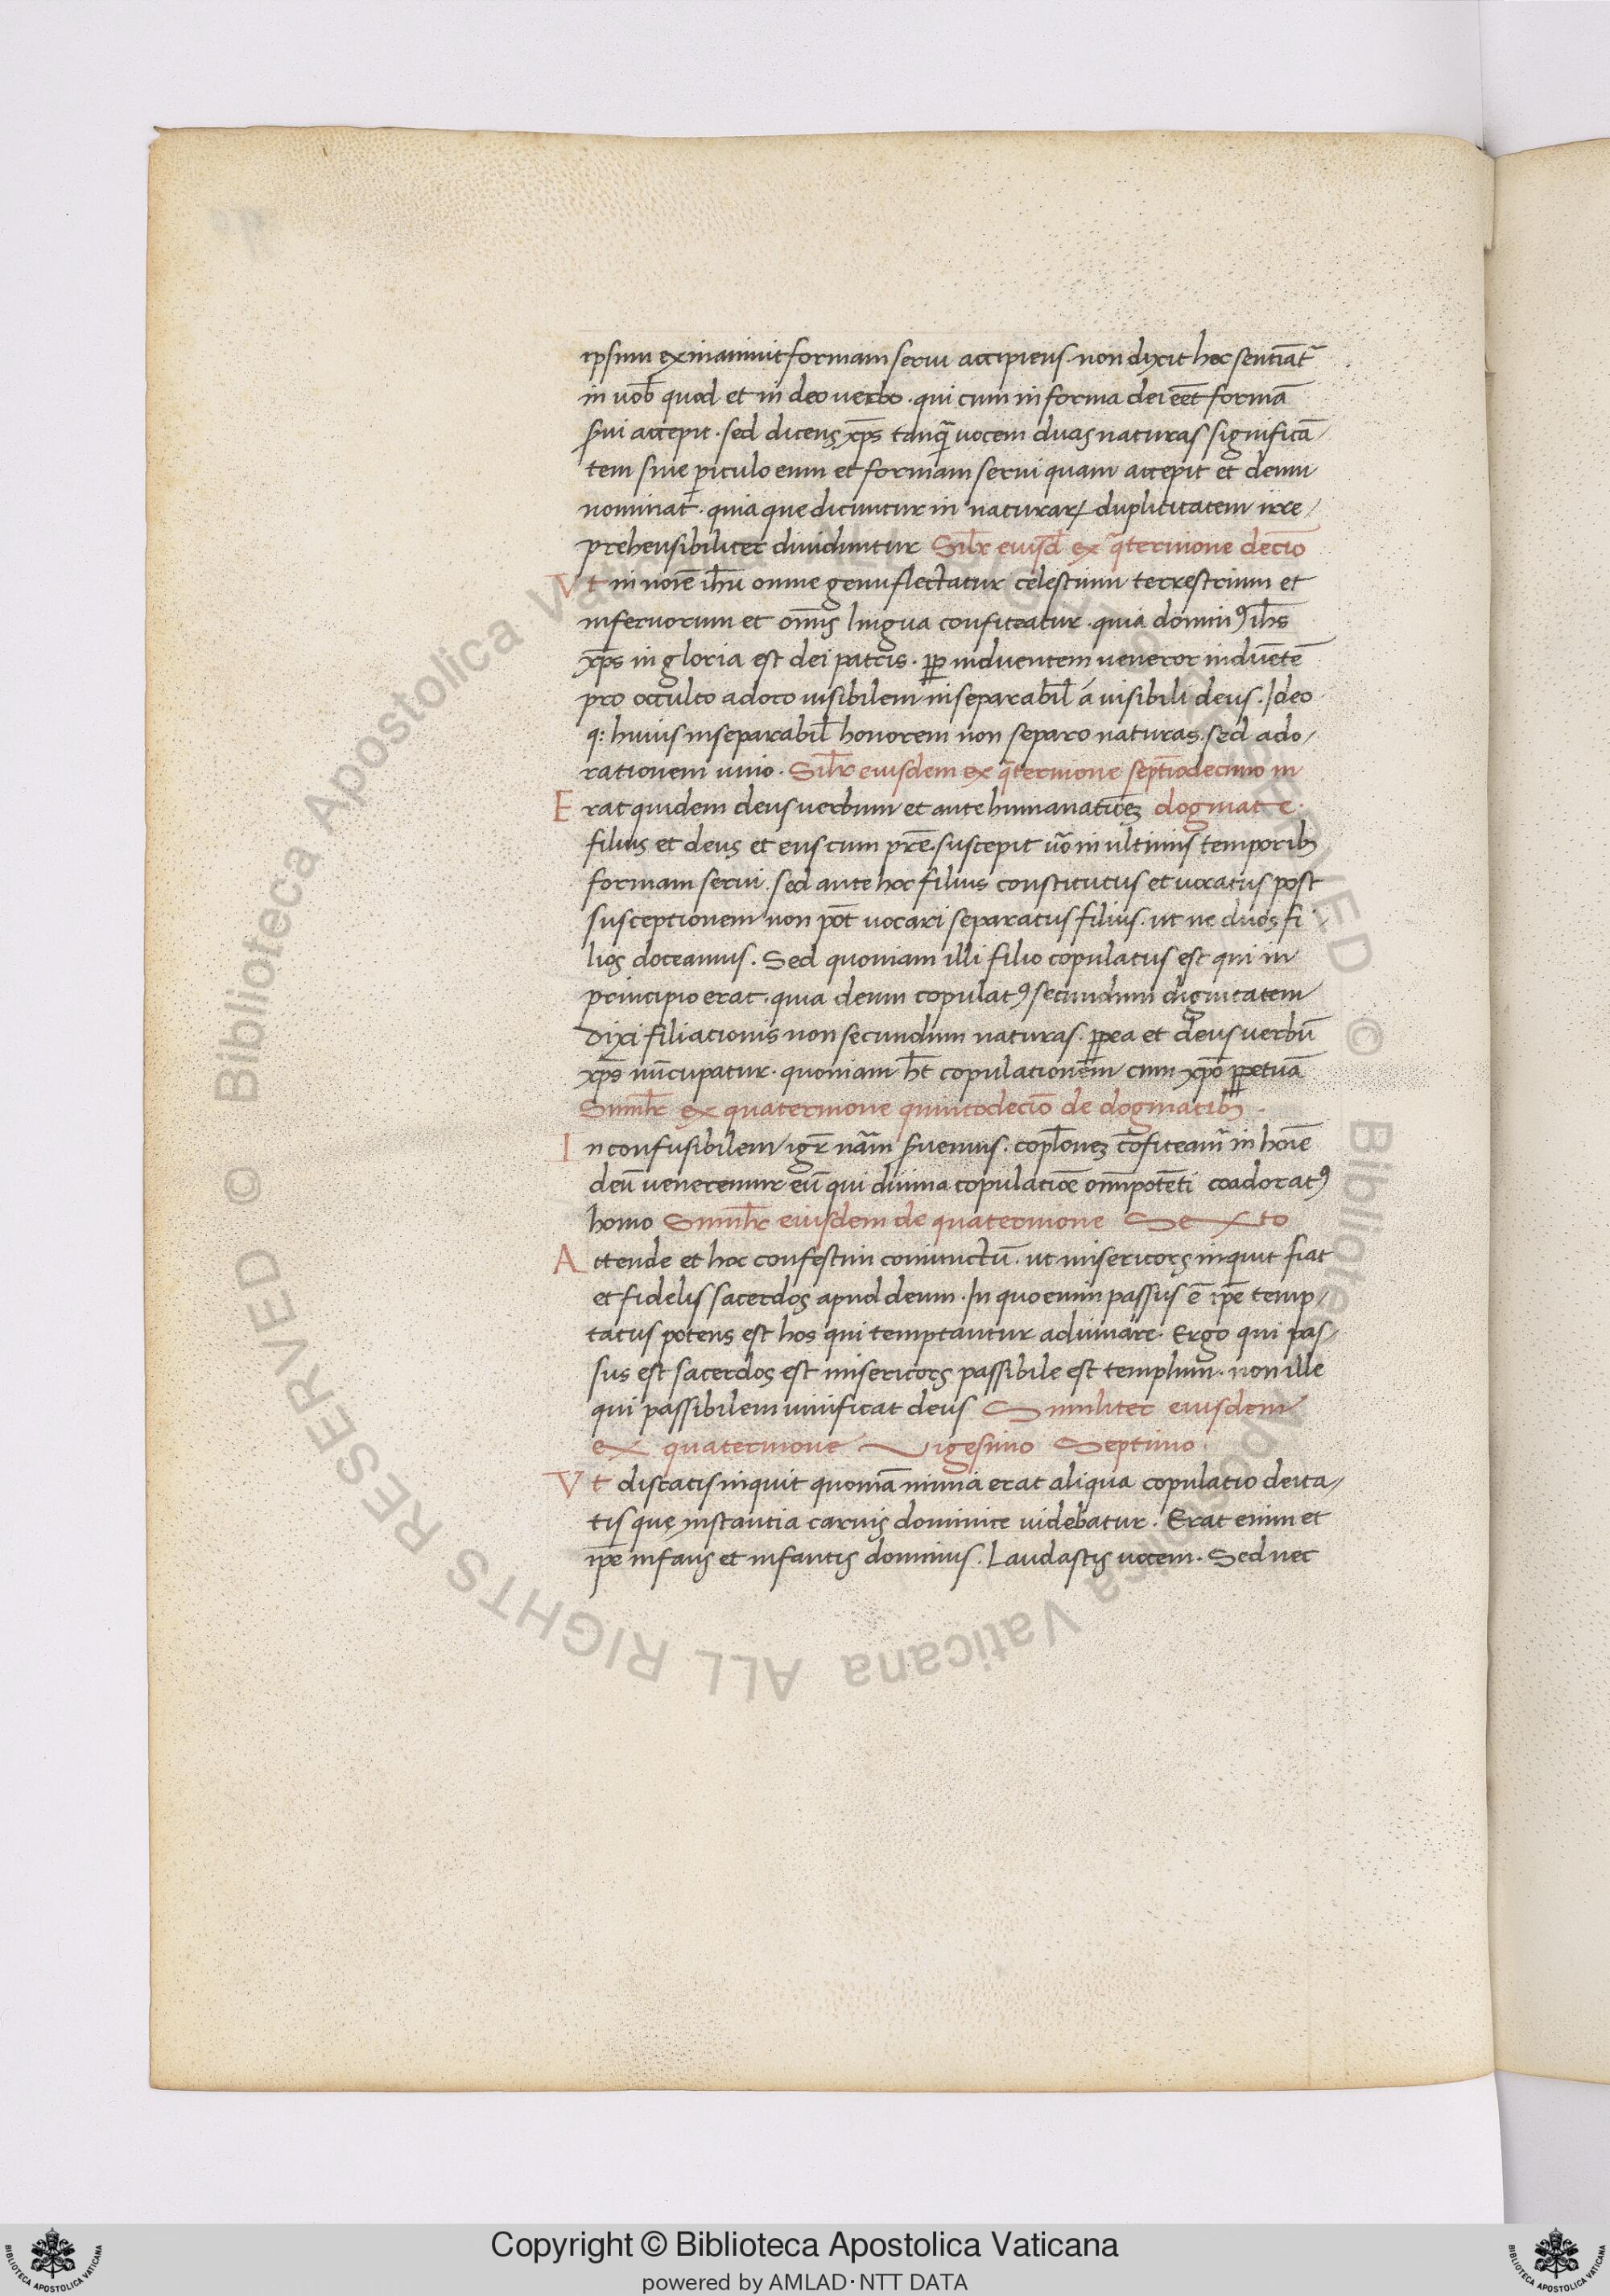 ipsum exinaniuit formam serui accipiens. non dixit hoc sentiat᷑
in uob̄ quod et in deo uerbo. qui cum in forma dei eēt formā
ꝓ̄ui accepit. sed dicens xp̄s tanꝗ̄ uocem duas naturas significā/
tem sine p̱iculo eum et formam serui quam accepit et deum
nominat. quia que dicuntur in naturaꝝ duplicitatem irre/
prehensibiliter diuiduntur Sil̄r eiusd̄ ex q̄ternione decīo
Vt in noīe ih̄u omne genu flectatur celestium terrestrium et
infernorum et om̄is lingua confiteatur. quia dominꝰ ih̄s
xp̄s in gloria est dei patris. ꝓp̱ induentem ueneror induētē
pro occulto adoro uisibilem inseparabil̄ a uisibili deus. Ideo
q: huius inseparabil̄ honorem non separo naturas. sed ado/
rationem unio. Sil̄r eiusdem ex q̄ternione septīodecimo in
Erat quidem deus uerbum et ante humanationeꝫ dogmate.
filius et deus et ens cum pr̄e. suscepit u͞o in ultimis temporibꝫ
formam serui. sed ante hoc filius constitutus et uocatus post
susceptionem non pōt uocari separatus filius. ut ne duos fi
lios doceamus. Sed quoniam illi filio copulatus est qui in
principio erat. quia deum copulatꝰ secundum dignitatem
dixi filiationis non secundum naturas. ꝓp̱ea et deus uerbū
xp̄s nūcupatur. quoniam ht̄ copulationem cum xp̄o p̱petuā
Simil̄r ex quaternione quintodecīo de dogmatibꝫ.
Inconfusibilem igr̄ nām ꝓ̄uemus. copl̄oneꝫ cōfiteam᷑ in hoīe
deū ueneremur eū qui diuina copulatiōe om̄ipotēti coadoratꝰ
homo Simil̄r eiusdem de quaternione Sexto
Attende et hoc confestim coniunctū. ut misericors inquit fiat
et fidelis sacerdos apud deum. In quo enim passus ē ip̄e temp/
tatus potens est hos qui temptantur adiuuare. Ergo qui pas/
sus est sacerdos est misericors passibile est templum. non ille
qui passibilem uiuificat deus Similiter eiusdem
ex quaternione Vigesimo Septimo.
Vt discatis inquit quoniā nimia erat aliqua copulatio deita/
tis que, instantia carnis dominice uidebatur. Erat enim et
ip̄e infans et infantis dominus. Laudastis uocem. Sed nec
Copyright © Biblioteca Apostolica Vaticana
powered by AMLAD·NTT DATA